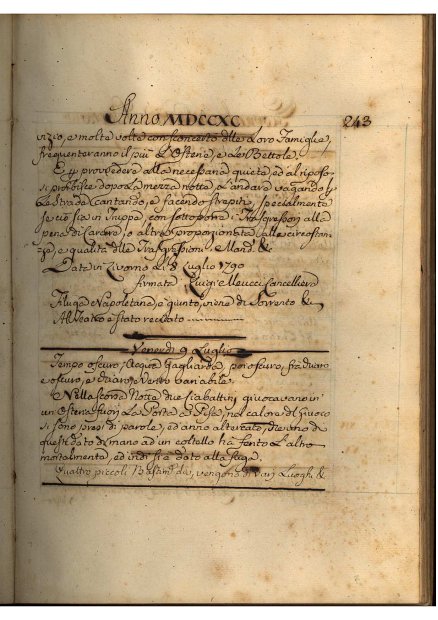 Anno MDCCXC 243
vizio, e molte volte con sconcerto delle Loro Famiglie,
frequenteranno il più L'Osterie, e Le Bettole.
E p provvedere alla necessaria quiete, ed al riposo,
si proibisce dopo La mezza notte L'andare vagando p
Le strade Cantando, e facendo strepiti, specialmente
se ciò sia in truppa, con sottoporre i Trasgressori alla
pena di Carcere, o altra proporzionata alle circostan-
ze, e qualità delle Trasgressioni. Mand. &
Data in Livorno Li 8 Luglio 1790
firmata Luigi Meucci Cancelliere
Filuga Napoletana è giunto, viene di Sorrento &
Al Teatro è stato recitato
Venerdì 9 Luglio
Tempo oscuro, Acqua Gagliarda, poi oscuro, fra chiaro
e oscuro, e chiaro, Vento variabile.
Nella scorsa Notte due Ciabattini giuocavano in
un Osteria fuori La Porta a Pisa, nel calore del Giuoco
si sono presi di parole, ed anno altercato, che uno di
questi dato di mano ad un coltello ha ferito L'altro
mortalmente, ed indi si è dato alla fuga.
Quattro piccoli Bastim. di, vengono di varj Luoghi &